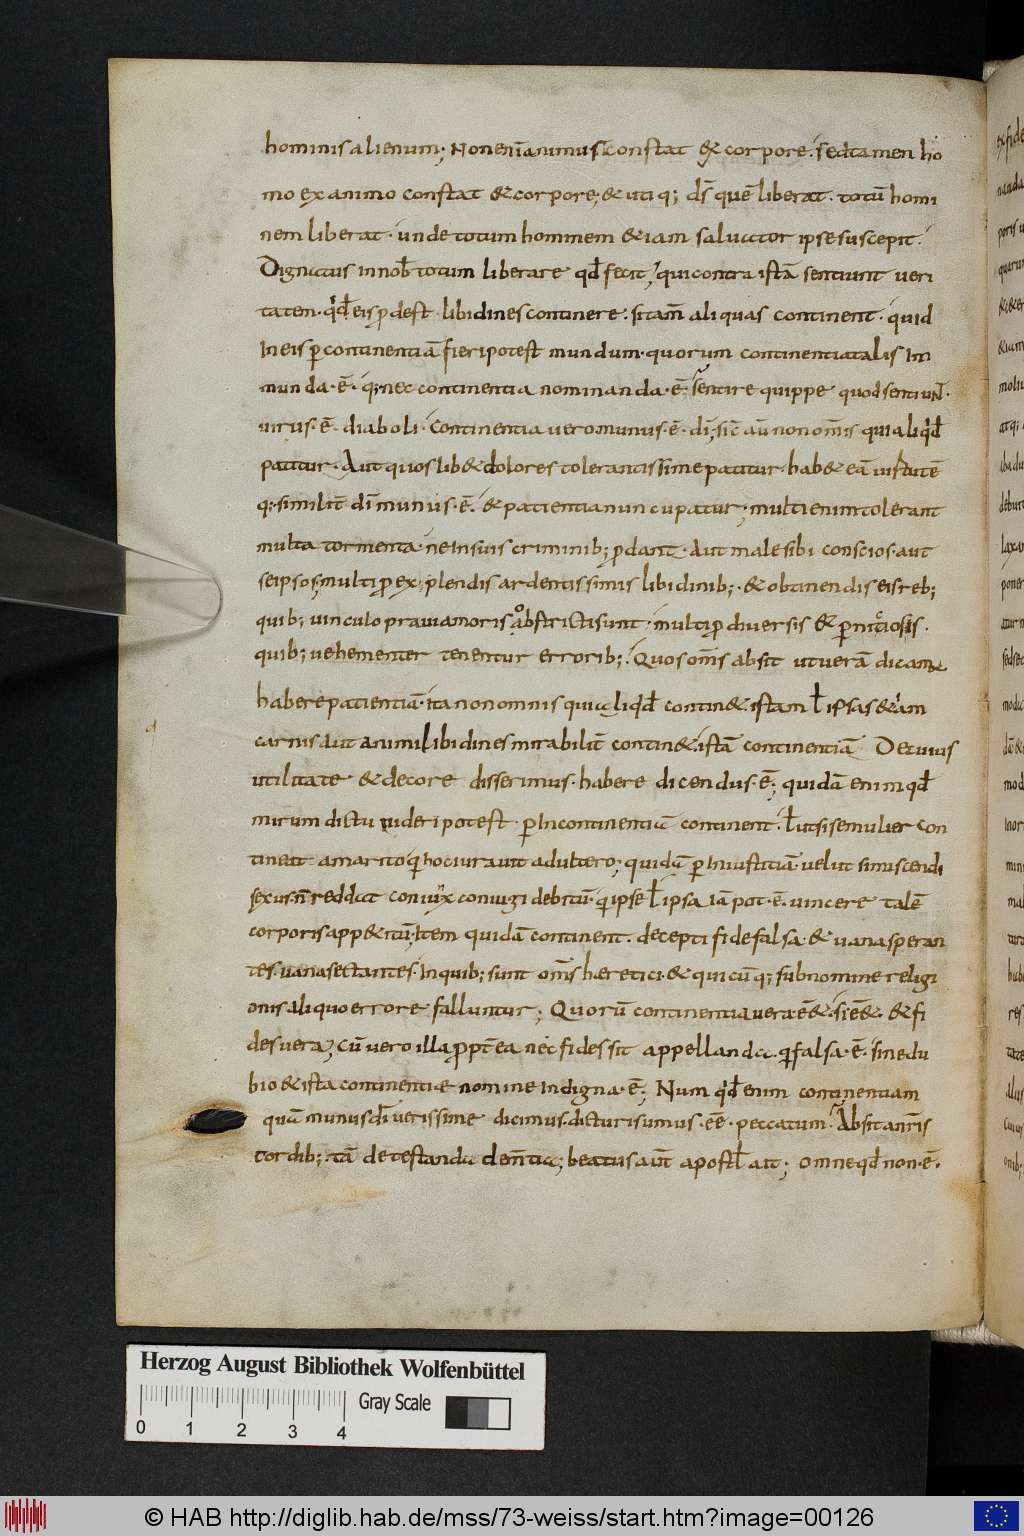 hominis alienum; Non enī animus constat & corpore. sed tamen ho
mo ex animo constat & corpore; & utiq; ds̄ quē liberat. totū homi
nem liberat. unde totum hominem & iam saluator ipse suscepit.
Dignatus in nob̄ totum liberare qd̄ fecit; qui contra istā sentiunt veri
tatem. qd̄ eis ꝓdest libidines continere. si tam̄ aliquas continent. quid
In eis ꝑ continentiā fieri potest mundum. quorum continentia talis In
munda. ē. q; nec continentia nominanda. ē. sentire quippe quod sentiun̄.
virus. ē. diaboli. Continentia vero munus. ē. dī; sic̄ au̅ non om̄s qui aliqd̄
patitur. Aut quoslib& dolores tolerantissime patitur. hab& eā uirtutē
q; similit̄ dī munus. ē. & patientia nuncupatur; multi enim tolerant
multa tormenta ne In suis criminib; ꝓdant. Aut male sibi conscios. aut
seipsos; multi ꝓ explendis ardentissimis libidinib;. & obtinendis eis reb;
quib; vinculo praui amoris obstricti sunt. multi ꝓ diversis & ꝑnitiosis.
quib; vehementer tenentur errorib;. Quos om̄s absit ut verā dicam
habere patientiā. ita non omnis qui aliqd̄ contin&. istam ł ipsas &iam
carnis aut animi libidines mirabilit̄ contin&. istā continentiā De cuius
utilitate & decore disserimus. habere dicendus. ē; quidā enim qd̄
mirum dictu videri potest. ꝑ Incontinentiā continent. ł ut si se mulier con
tineat a marito q̇ hoc iuravit adultero; quidā ꝑ Iniustitiā velut si miscendi
sexus. n̄ reddat coniux coniugi debitū. q̇ ipse ł ipsa iā pot. ē. vincere talē
corporis app&itū; Item quidā continent. decepti fide falsa. & vana speran
tes. vana sectantes. In quib; sunt om̄s haeretici. & quicūq; sub nomine religi
onis aliquo errore falluntur; Quorū continentia vera ē&. si ē&. & fi
des vera; Cū vero illa ꝓpt̄ea nec fides sit appellanda. q̇ falsa. ē. sine du
bio & ista continentiae nomine Indigna. ē; Num qd̄ enim continentiam
quā munus dī verissime dicimus. dicturi sumus. ēē. peccatum. Absit a nr̄is
cordib;. tā detestanda dem̄tia; beatus au̅t apostł ait; omne qd̄ non. ē.
d
Herzog August Bibliothek Wolfenbüttel
Gray Scale
0 1 2 3 4
© HAB http://diglib.hab.de/mss/73-weiss/start.htm?image=00126